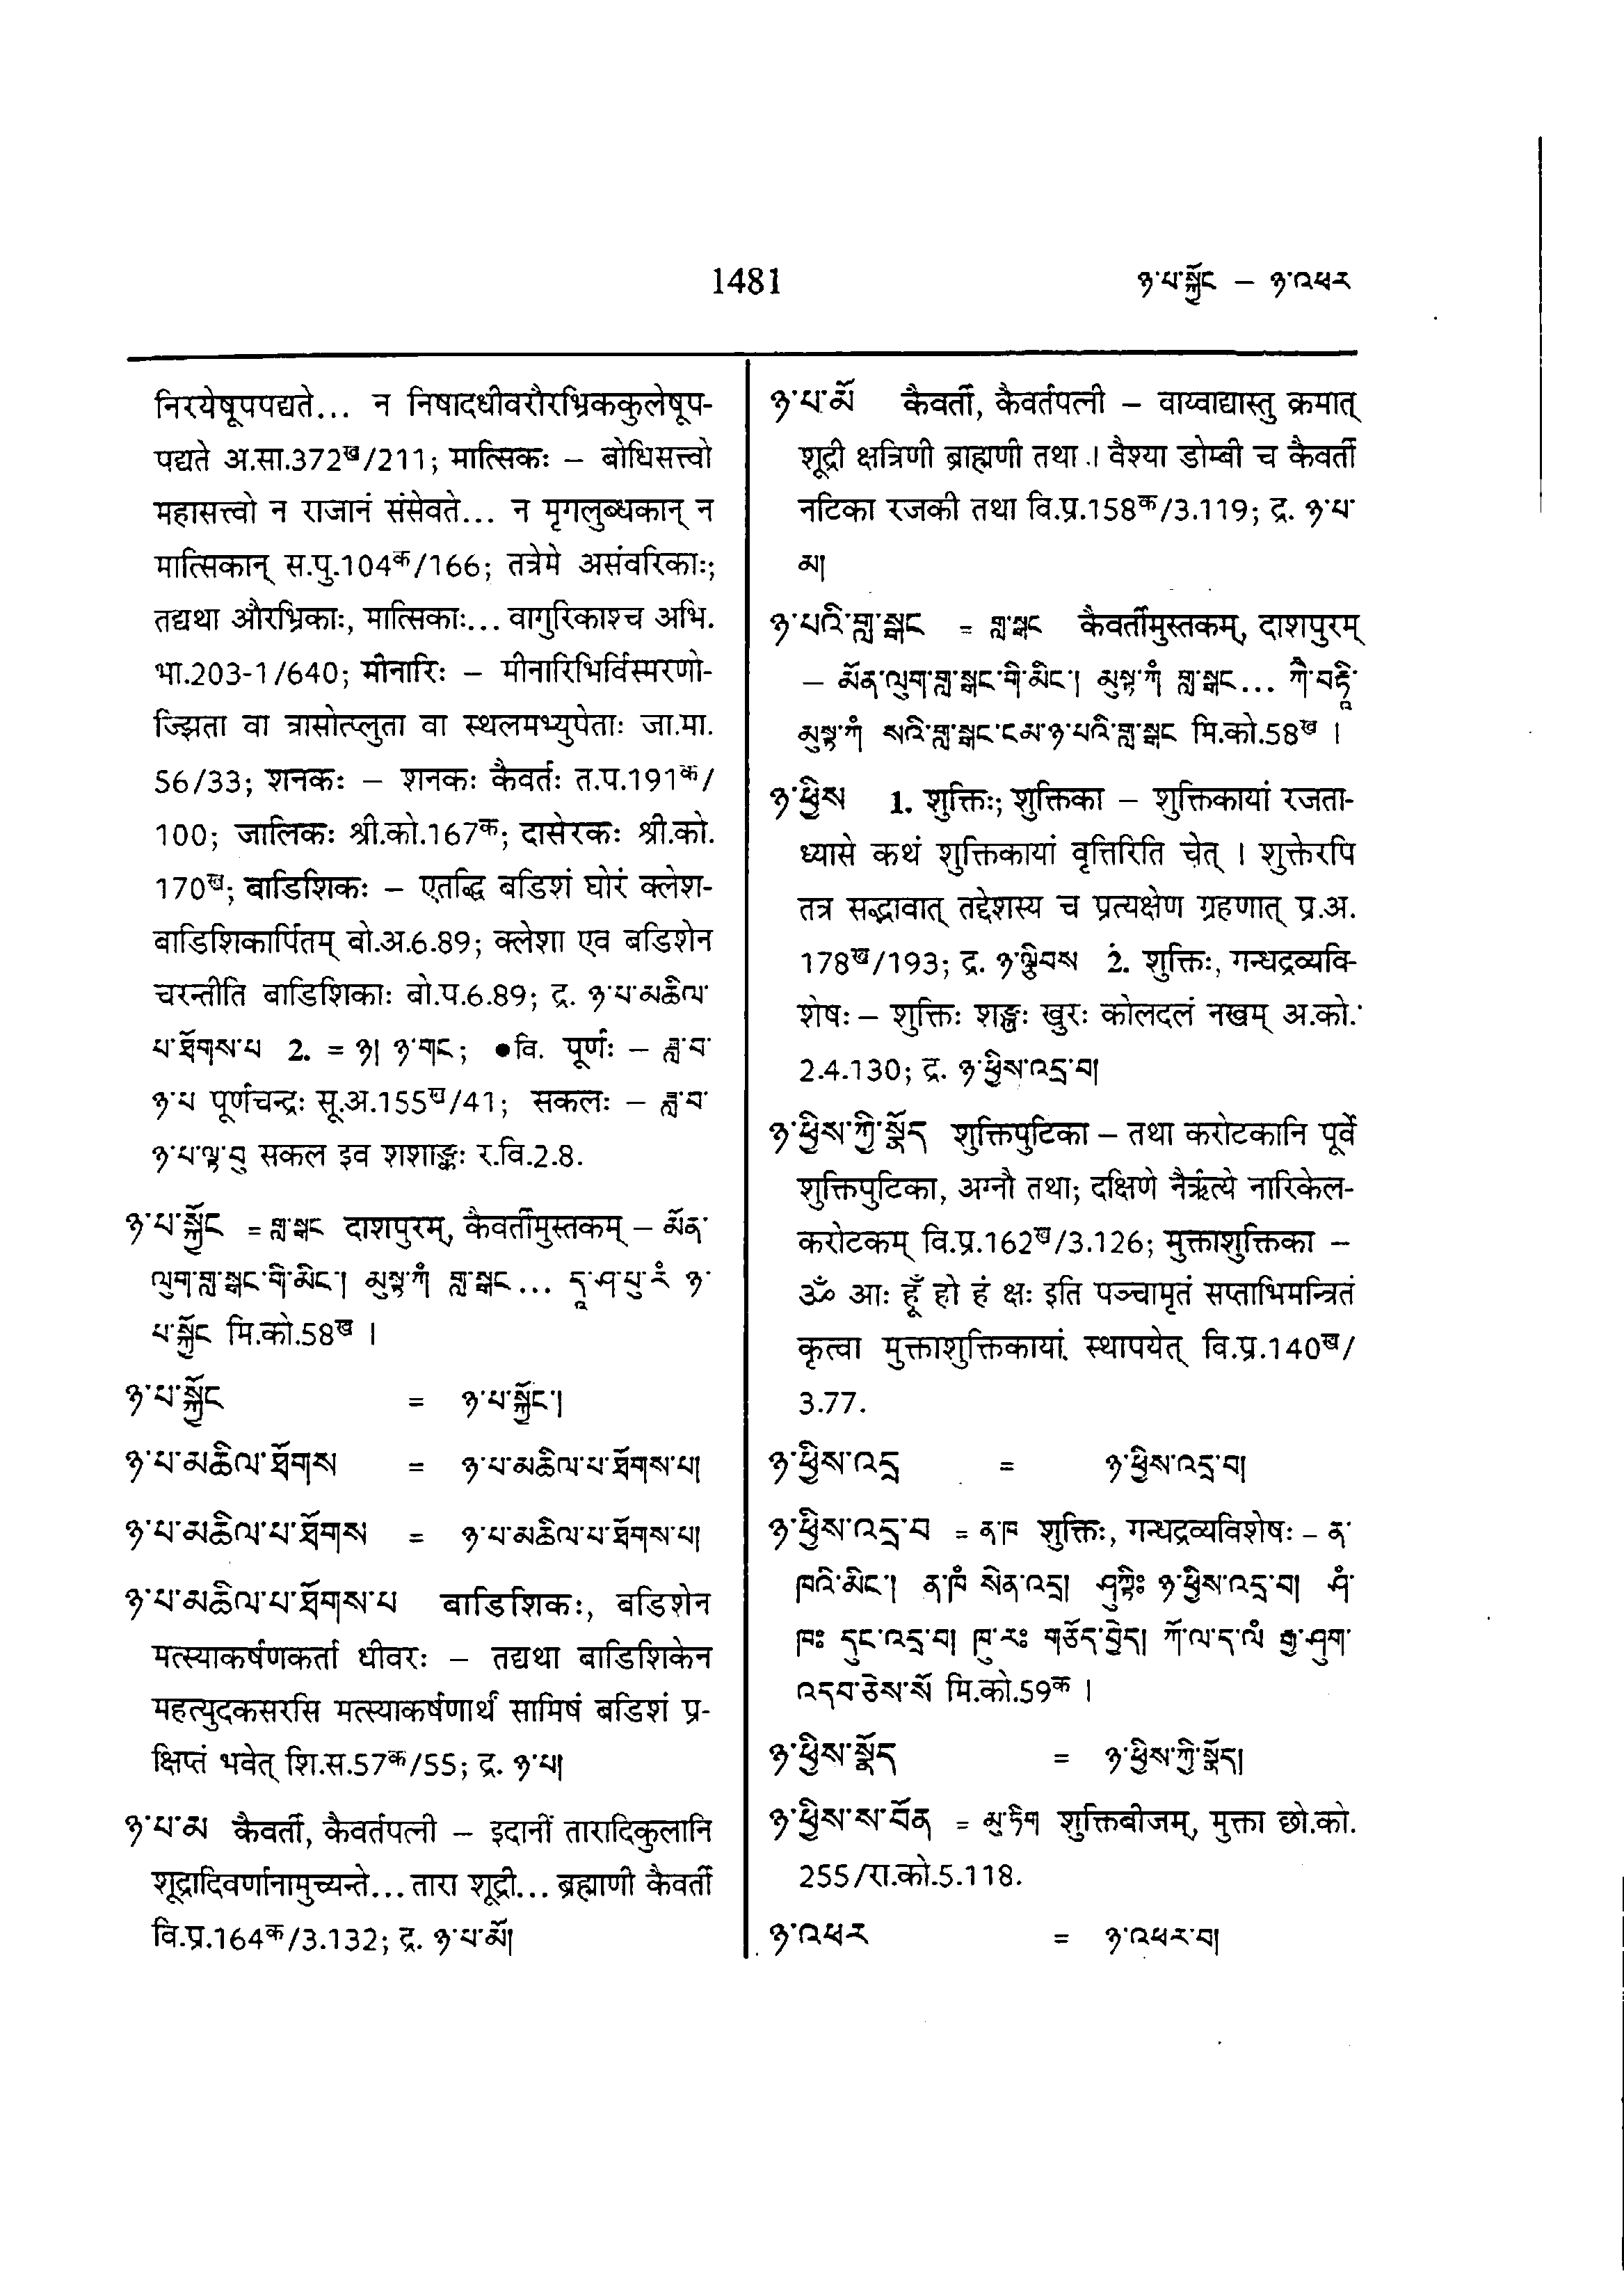 1481
ཉ་པ་སྐྱོང – ཉ་འཕར
निरयेषूपपद्यते... न निषादधीवरौरभ्रिककुलेषूप-
पद्यते अ.सा.372ख/211; मात्सिकः – बोधिसत्त्वो
महासत्त्वो न राजानं संसेवते... न मृगलुब्धकान् न
मात्सिकान् स.पु.104क/166; तत्रेमे असंवरिकाः;
तद्यथा औरभ्रिकाः, मात्सिकाः... वागुरिकाश्च अभि.
भा.203-1/640; मीनारिः – मीनारिभिर्विस्मरणो-
ज्झिता वा त्रासोत्प्लुता वा स्थलमभ्युपेताः जा.मा.
56/33; शनकः – शनकः कैवर्तः त.प.191क/
100; जालिकः श्री.को.167क; दासेरकः श्री.को.
170ख; बाडिशिकः – एतद्धि बडिशं घोरं क्लेश-
बाडिशिकार्पितम् बो.अ.6.89; क्लेशा एव बडिशेन
चरन्तीति बाडिशिकाः बो.प.6.89; द्र. ཉ་པ་མཆིལ་
པ་ཐོགས་པ 2. = ཉ། ཉ་གང; ●वि. पूर्णः – ཟླ་བ་
ཉ་པ पूर्णचन्द्रः सू.अ.155ख/41; सकलः – ཟླ་བ་
ཉ་པ་ལྟ་བུ सकल इव शशाङ्कः र.वि.2.8.
ཉ་པ་སྐྱོང = གླ་སྒང दाशपुरम्, कैवर्तीमुस्तकम् – མོན་
ལུག་གླ་སྒང་གི་མིང་། མུསྟ་ཀཾ གླ་སྒང... དཱ་ཤ་པུ་རཾ ཉ་
པ་སྐྱོང मि.को.58ख ।
ཉ་པ་སྐྱོང = ཉ་པ་སྐྱོང་།
ཉ་པ་མཆིལ་ཐོགས = ཉ་པ་མཆིལ་པ་ཐོགས་པ།
ཉ་པ་མཆིལ་པ་ཐོགས = ཉ་པ་མཆིལ་པ་ཐོགས་པ།
ཉ་པ་མཆིལ་པ་ཐོགས་པ बाडिशिकः, बडिशेन
मत्स्याकर्षणकर्ता धीवरः – तद्यथा बाडिशिकेन
महत्युदकसरसि मत्स्याकर्षणार्थं सामिषं बडिशं प्र-
क्षिप्तं भवेत् शि.स.57क/55; द्र. ཉ་པ།
ཉ་པ་མ कैवर्ती, कैवर्तपत्नी – इदानीं तारादिकुलानि
शूद्रादिवर्णानामुच्यन्ते... तारा शूद्री... ब्रह्माणी कैवर्ती
वि.प्र.164क/3.132; द्र. ཉ་པ་མོ།
ཉ་པ་མོ कैवर्ती, कैवर्तपत्नी – वाय्वाद्यास्तु क्रमात्
शूद्री क्षत्रिणी ब्राह्मणी तथा । वैश्या डोम्बी च कैवर्ती
नटिका रजकी तथा वि.प्र.158क/3.119; द्र. ཉ་པ་
མ།
ཉ་པའི་གླ་སྒང = གླ་སྒང कैवर्तीमुस्तकम्, दाशपुरम्
– མོན་ལུག་གླ་སྒང་གི་མིང་། མུསྟ་ཀཾ གླ་སྒང...
མུསྟ་ཀཾ སའི་གླ་སྒང་ངམ་ཉ་པའི་གླ་སྒང मि.को.58ख ।
ཉ་ཕྱིས 1. शुक्तिः; शुक्तिका – शुक्तिकायां रजता-
ध्यासे कथं शुक्तिकायां वृत्तिरिति चेत् । शुक्तेरपि
तत्र सद्भावात् तद्देशस्य च प्रत्यक्षेण ग्रहणात् प्र.अ.
178ख/193; द्र. ཉ་ལྕིབས 2. शुक्तिः, गन्धद्रव्यवि-
शेषः – शुक्तिः शङ्खः खुरः कोलदलं नखम् अ.को.
2.4.130; द्र. ཉ་ཕྱིས་འདྲ་བ།
ཉ་ཕྱིས་ཀྱི་སྣོད शुक्तिपुटिका – तथा करोटकानि पूर्वे
शुक्तिपुटिका, अग्नौ तथा; दक्षिणे नैर्ऋत्ये नारिकेल-
करोटकम् वि.प्र.162ख/3.126; मुक्ताशुक्तिका –
ॐ आः हूँ हो हं क्षः इति पञ्चामृतं सप्ताभिमन्त्रितं
कृत्वा मुक्ताशुक्तिकायां स्थापयेत् वि.प्र.140ख/
3.77.
ཉ་ཕྱིས་འདྲ = ཉ་ཕྱིས་འདྲ་བ།
ཉ་ཕྱིས་འདྲ་བ = ན་ཁ शुक्तिः, गन्धद्रव्यविशेषः – ན་
ཁའི་མིང་། ན་ཁཾ སེན་འདྲ། ཤུཀྟིཿ ཉ་ཕྱིས་འདྲ་བ། ཤཾ་
ཁཿ དུང་འདྲ་བ། ཁུ་རཿ གཅོད་བྱེད། ཀོ་ལ་ད་ལཾ རྒྱ་ཤུག་
འདབ་ཅེས་སོ मि.को.59क ।
ཉ་ཕྱིས་སྣོད = ཉ་ཕྱིས་ཀྱི་སྣོད།
ཉ་ཕྱིས་ས་བོན = མུ་ཏིག शुक्तिबीजम्, मुक्ता छो.को.
255/रा.को.5.118.
ཉ་འཕར = ཉ་འཕར་བ།